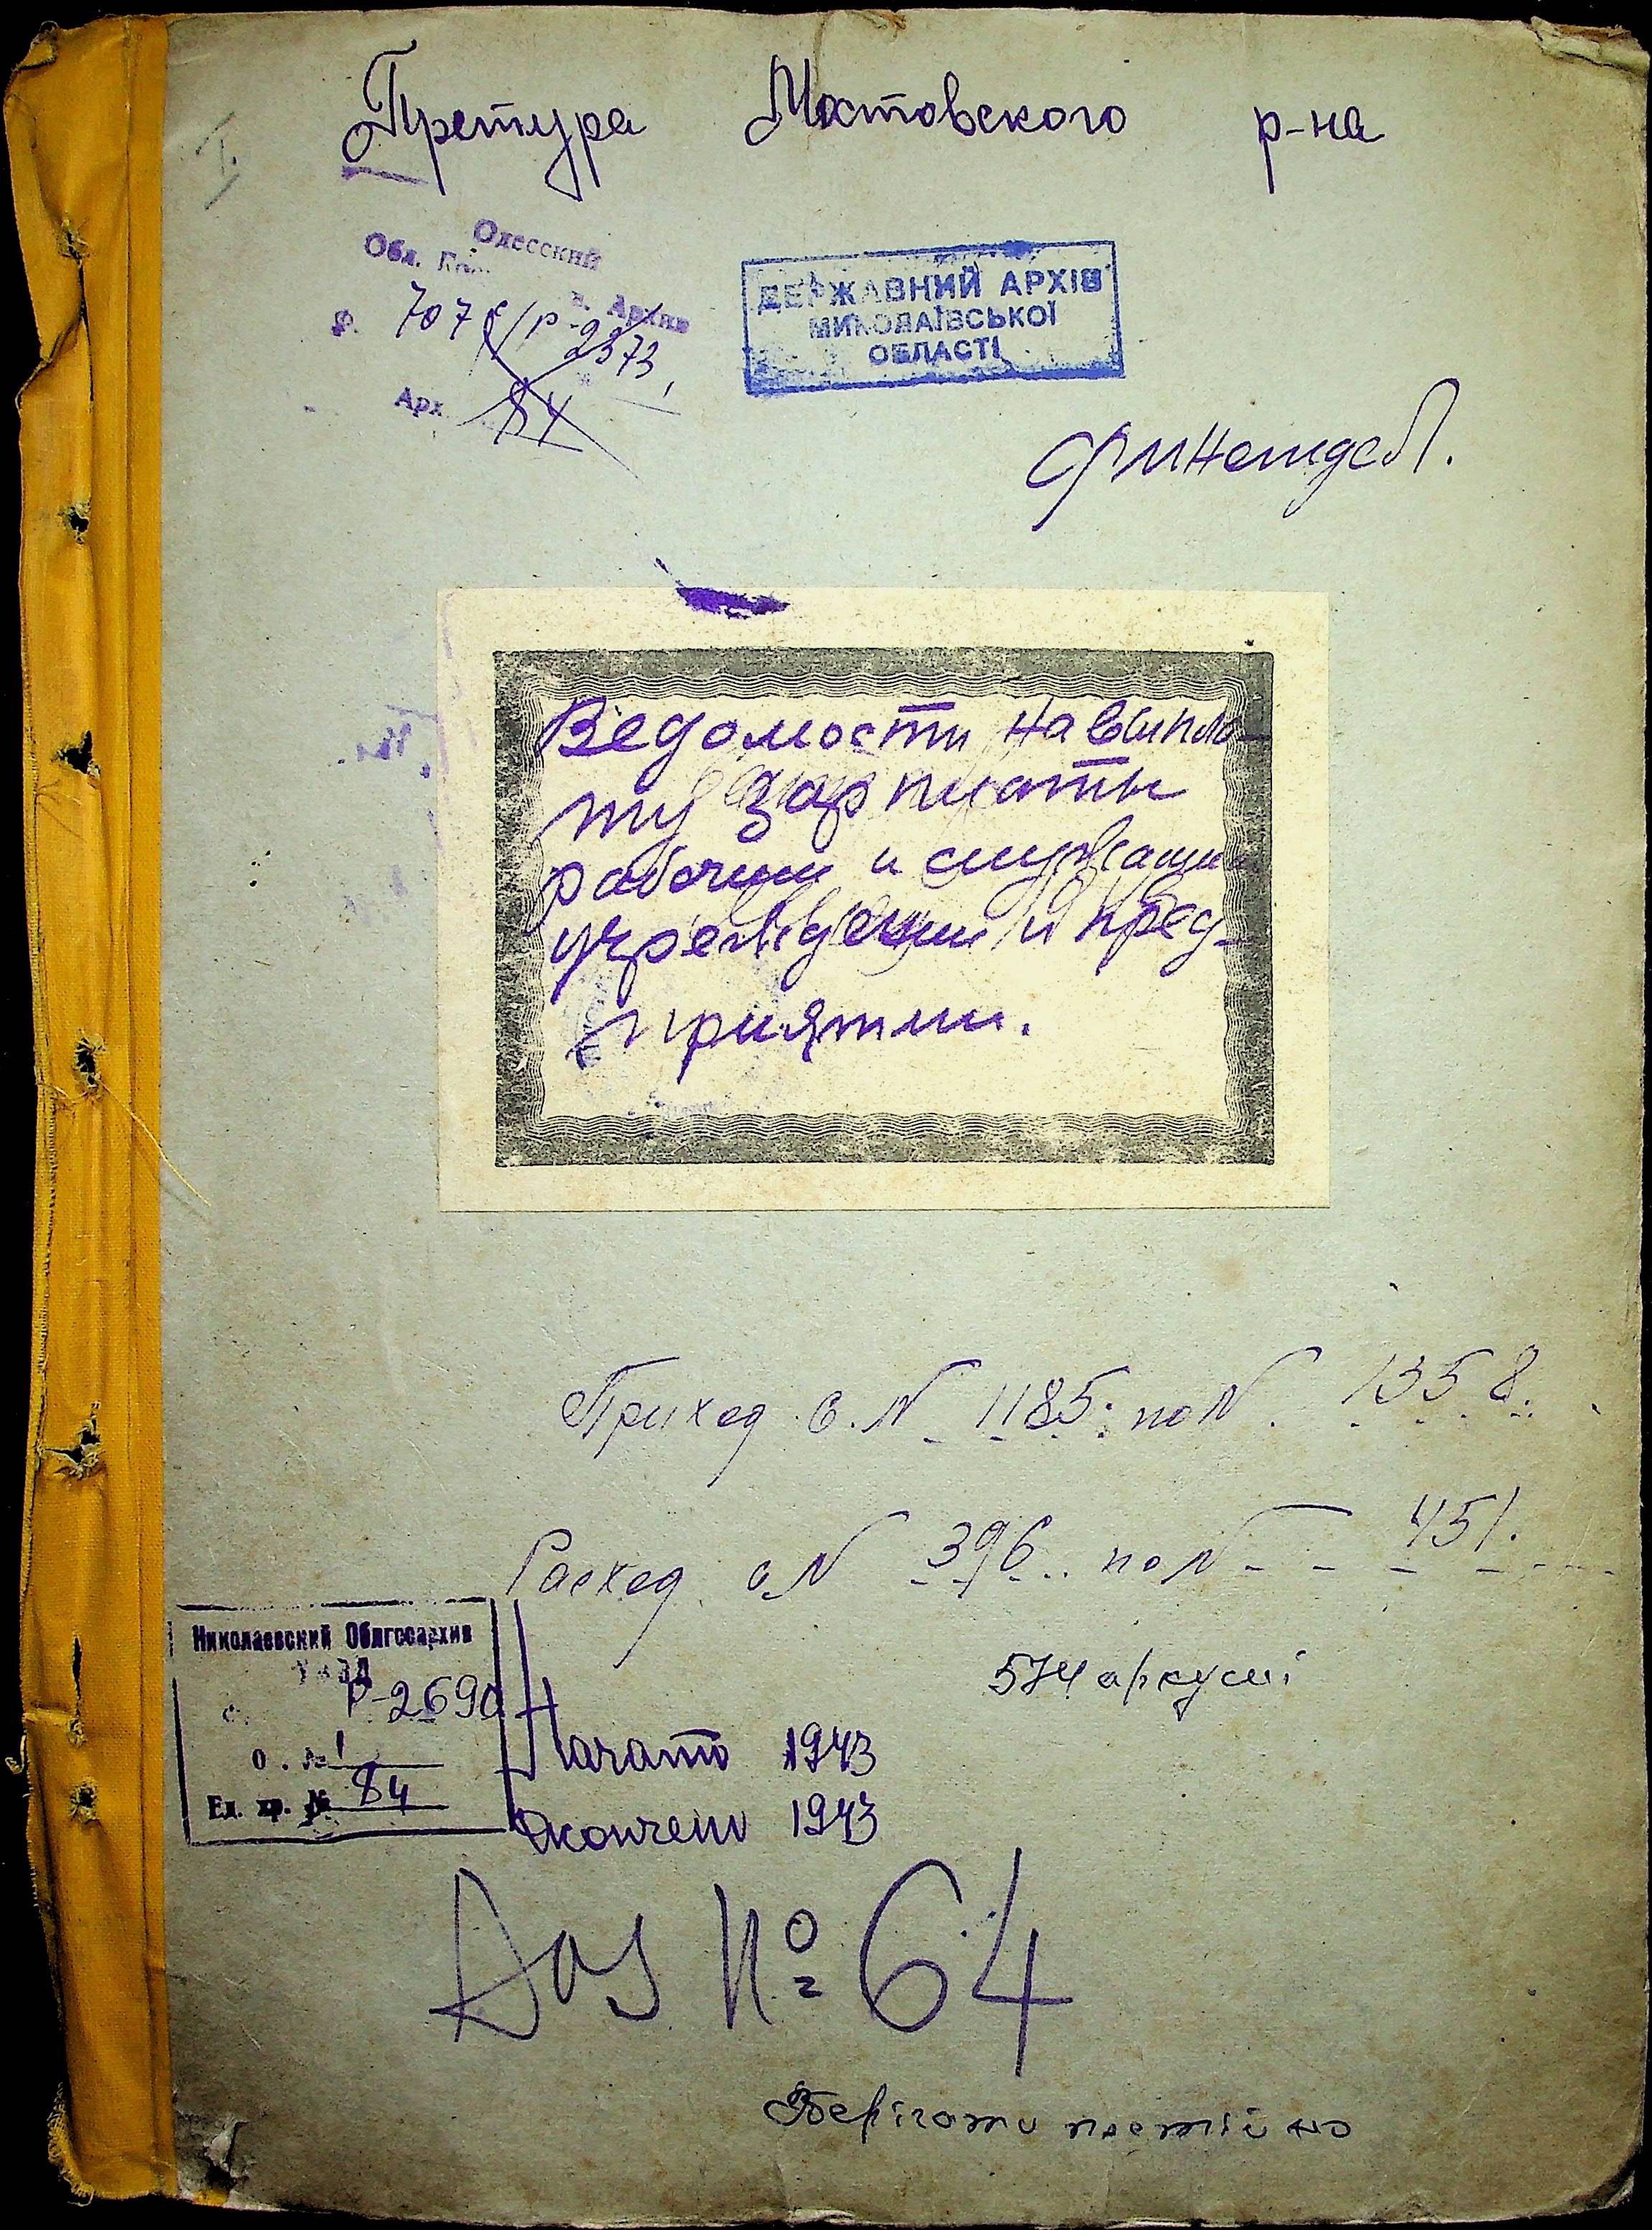 Претура Мостовского р-на
I.
Одесский
Обл. Гос. Архив
Ф. 707с/р-2373
Арх. 84
ДЕРЖАВНИЙ АРХІВ
МИКОЛАЇВСЬКОЇ
ОБЛАСТІ
Финотдел.
Ведомости на выпла-
ту зарплаты
рабочим и служащим
учреждений и пред-
приятий.
Приход с. N 1185. по N. 1358.
Расход с N 396. по N 451.
574 аркуші
Николаевский Облгосархив
УВД
Р-2690
О. № 1
Ед. хр. № 84
Начато 1943
Окончено 1943
Dos № 64
Зберігати постійно